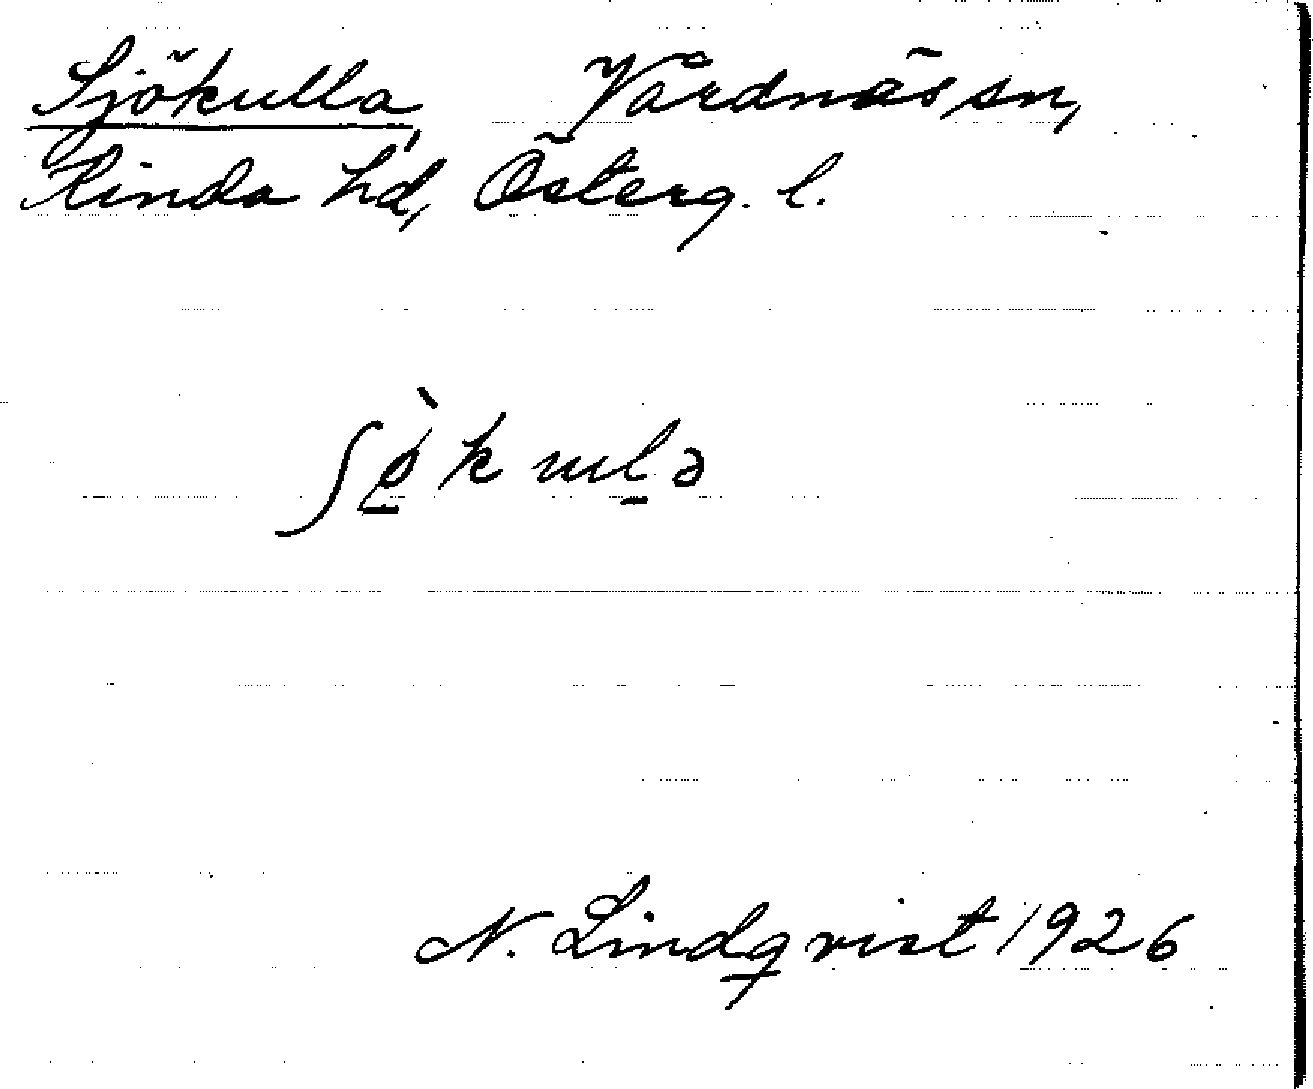 Sjökulla Vårdnäs sn,
Kinda hd, Österg. l.
ʃø̠̀kul̠ə
N. Lindqvist 1926